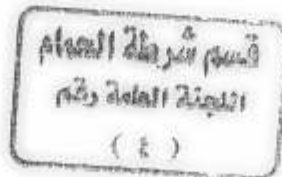 قسم شرطة العوام
اللجنة العامة رقم
( ٤ )